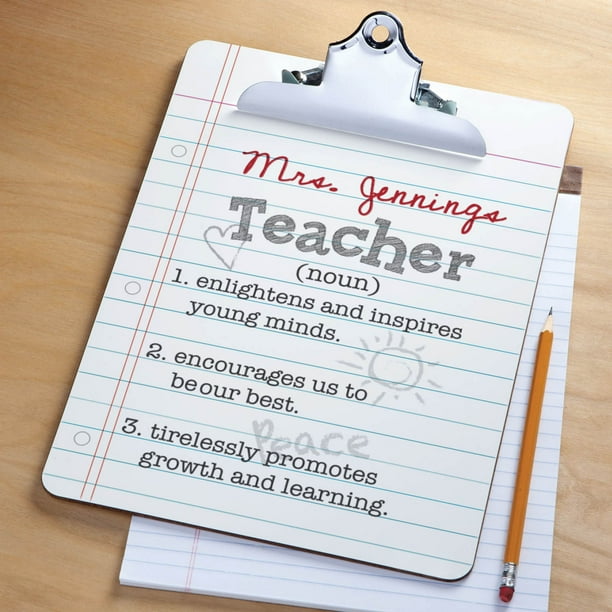 Mrs. Jennings
Teacher
(noun)
1. enlightens and inspires
young minds.
2. encourages us to
be our best.
Peace
3. tirelessly promotes
growth and learning.